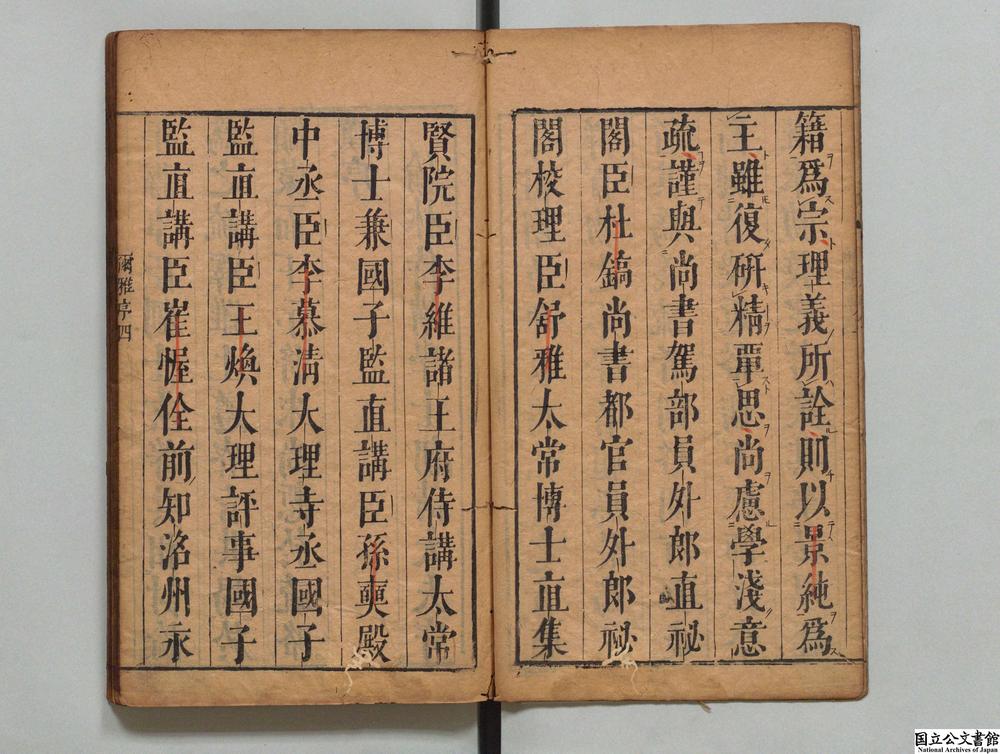 籍爲宗理義所詮則以景純爲
主雖復硏精覃思尚慮學淺意
疏謹與尚書駕部員外郎直祕
閣臣杜鎬尚書都官員外郎祕
閣校理臣舒雅太常博士直集
賢院臣李維諸王府侍講太常
博士兼國子監直講臣孫奭殿
中丞臣李慕清大理寺丞國子
監直講臣王煥大理評事國子
監直講臣崔偓佺前知洺州永
爾雅序四
国立公文書館
National Archives of Japan